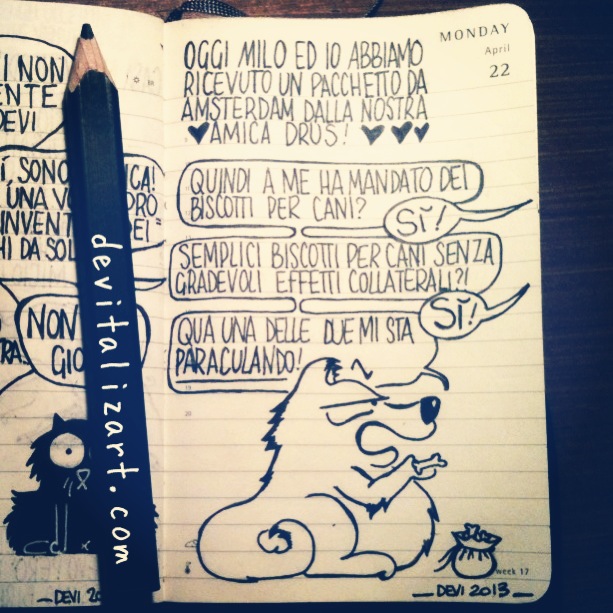 I NON
ENTE
DEVI
Í, SONO
ICA!
UNA VO
DRO
INVENT
EI"
HI DA SOL
NON
GIO
TRA.
devitalizart.com
DEVI 20
MONDAY
April
22
OGGI MILO ED IO ABBIAMO
RICEVUTO UN PACCHETTO DA
AMSTERDAM DALLA NOSTRA
♥AMICA DRUS! ♥♥♥
QUINDI A ME HA MANDATO DEI
BISCOTTI PER CANI?
SÍ!
SEMPLICI BISCOTTI PER CANI SENZA
GRADEVOLI EFFETTI COLLATERALI?!
SÍ!
QUA UNA DELLE DUE MI STA
PARACULANDO!
19
20
week 17
DEVI 2013